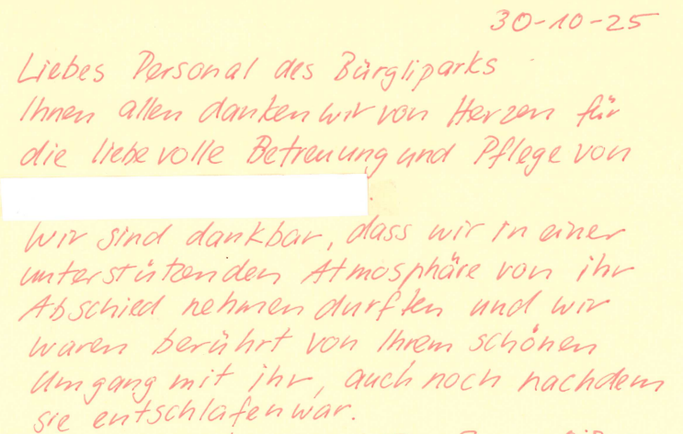 30-10-25
Liebes Personal des Bürgliparks
Ihnen allen danken wir von Herzen für
die liebevolle Betreuung und Pflege von
.
Wir sind dankbar, dass wir in einer
unterstützenden Atmosphäre von ihr
Abschied nehmen durften und wir
waren berührt von Ihrem schönen
Umgang mit ihr, auch noch nachdem
sie entschlafen war.